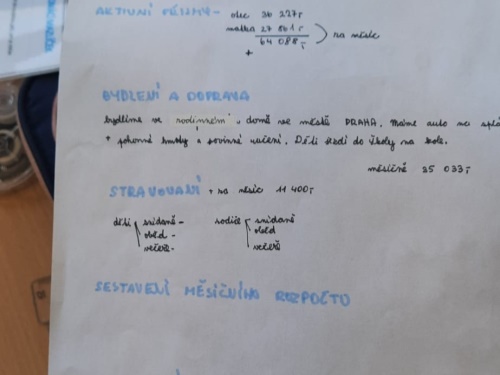 AKTIVNÍ PŘÍJMY - otec 36 227,-
matka 27 861,-
64 088,- na měsíc
+
BYDLENÍ A DOPRAVA
bydlíme ve rodinném domě ve městě PRAHA. Máme auto na
+ pohonné hmoty + povinné ručení. Děti jezdí do školy na kole.
měsíčně 35 033,-
STRAVOVÁNÍ + na měsíc 11 400,-
děti snídaně - rodiče snídaně
oběd - oběd
večeře - večeře
SESTAVENÍ MĚSÍČNÍHO ROZPOČTU